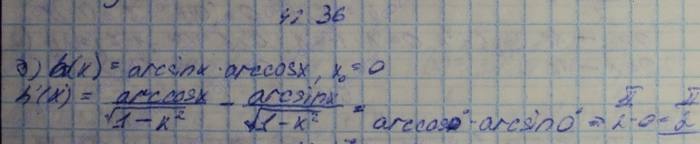 36
д) h(x) = arcsinx · arccosx, x₀ = 0
h'(x) = arccosx/√(1-x²) - arcsinx/√(1-x²) = arccos0 - arcsin0 = π/2 - 0 = π/2